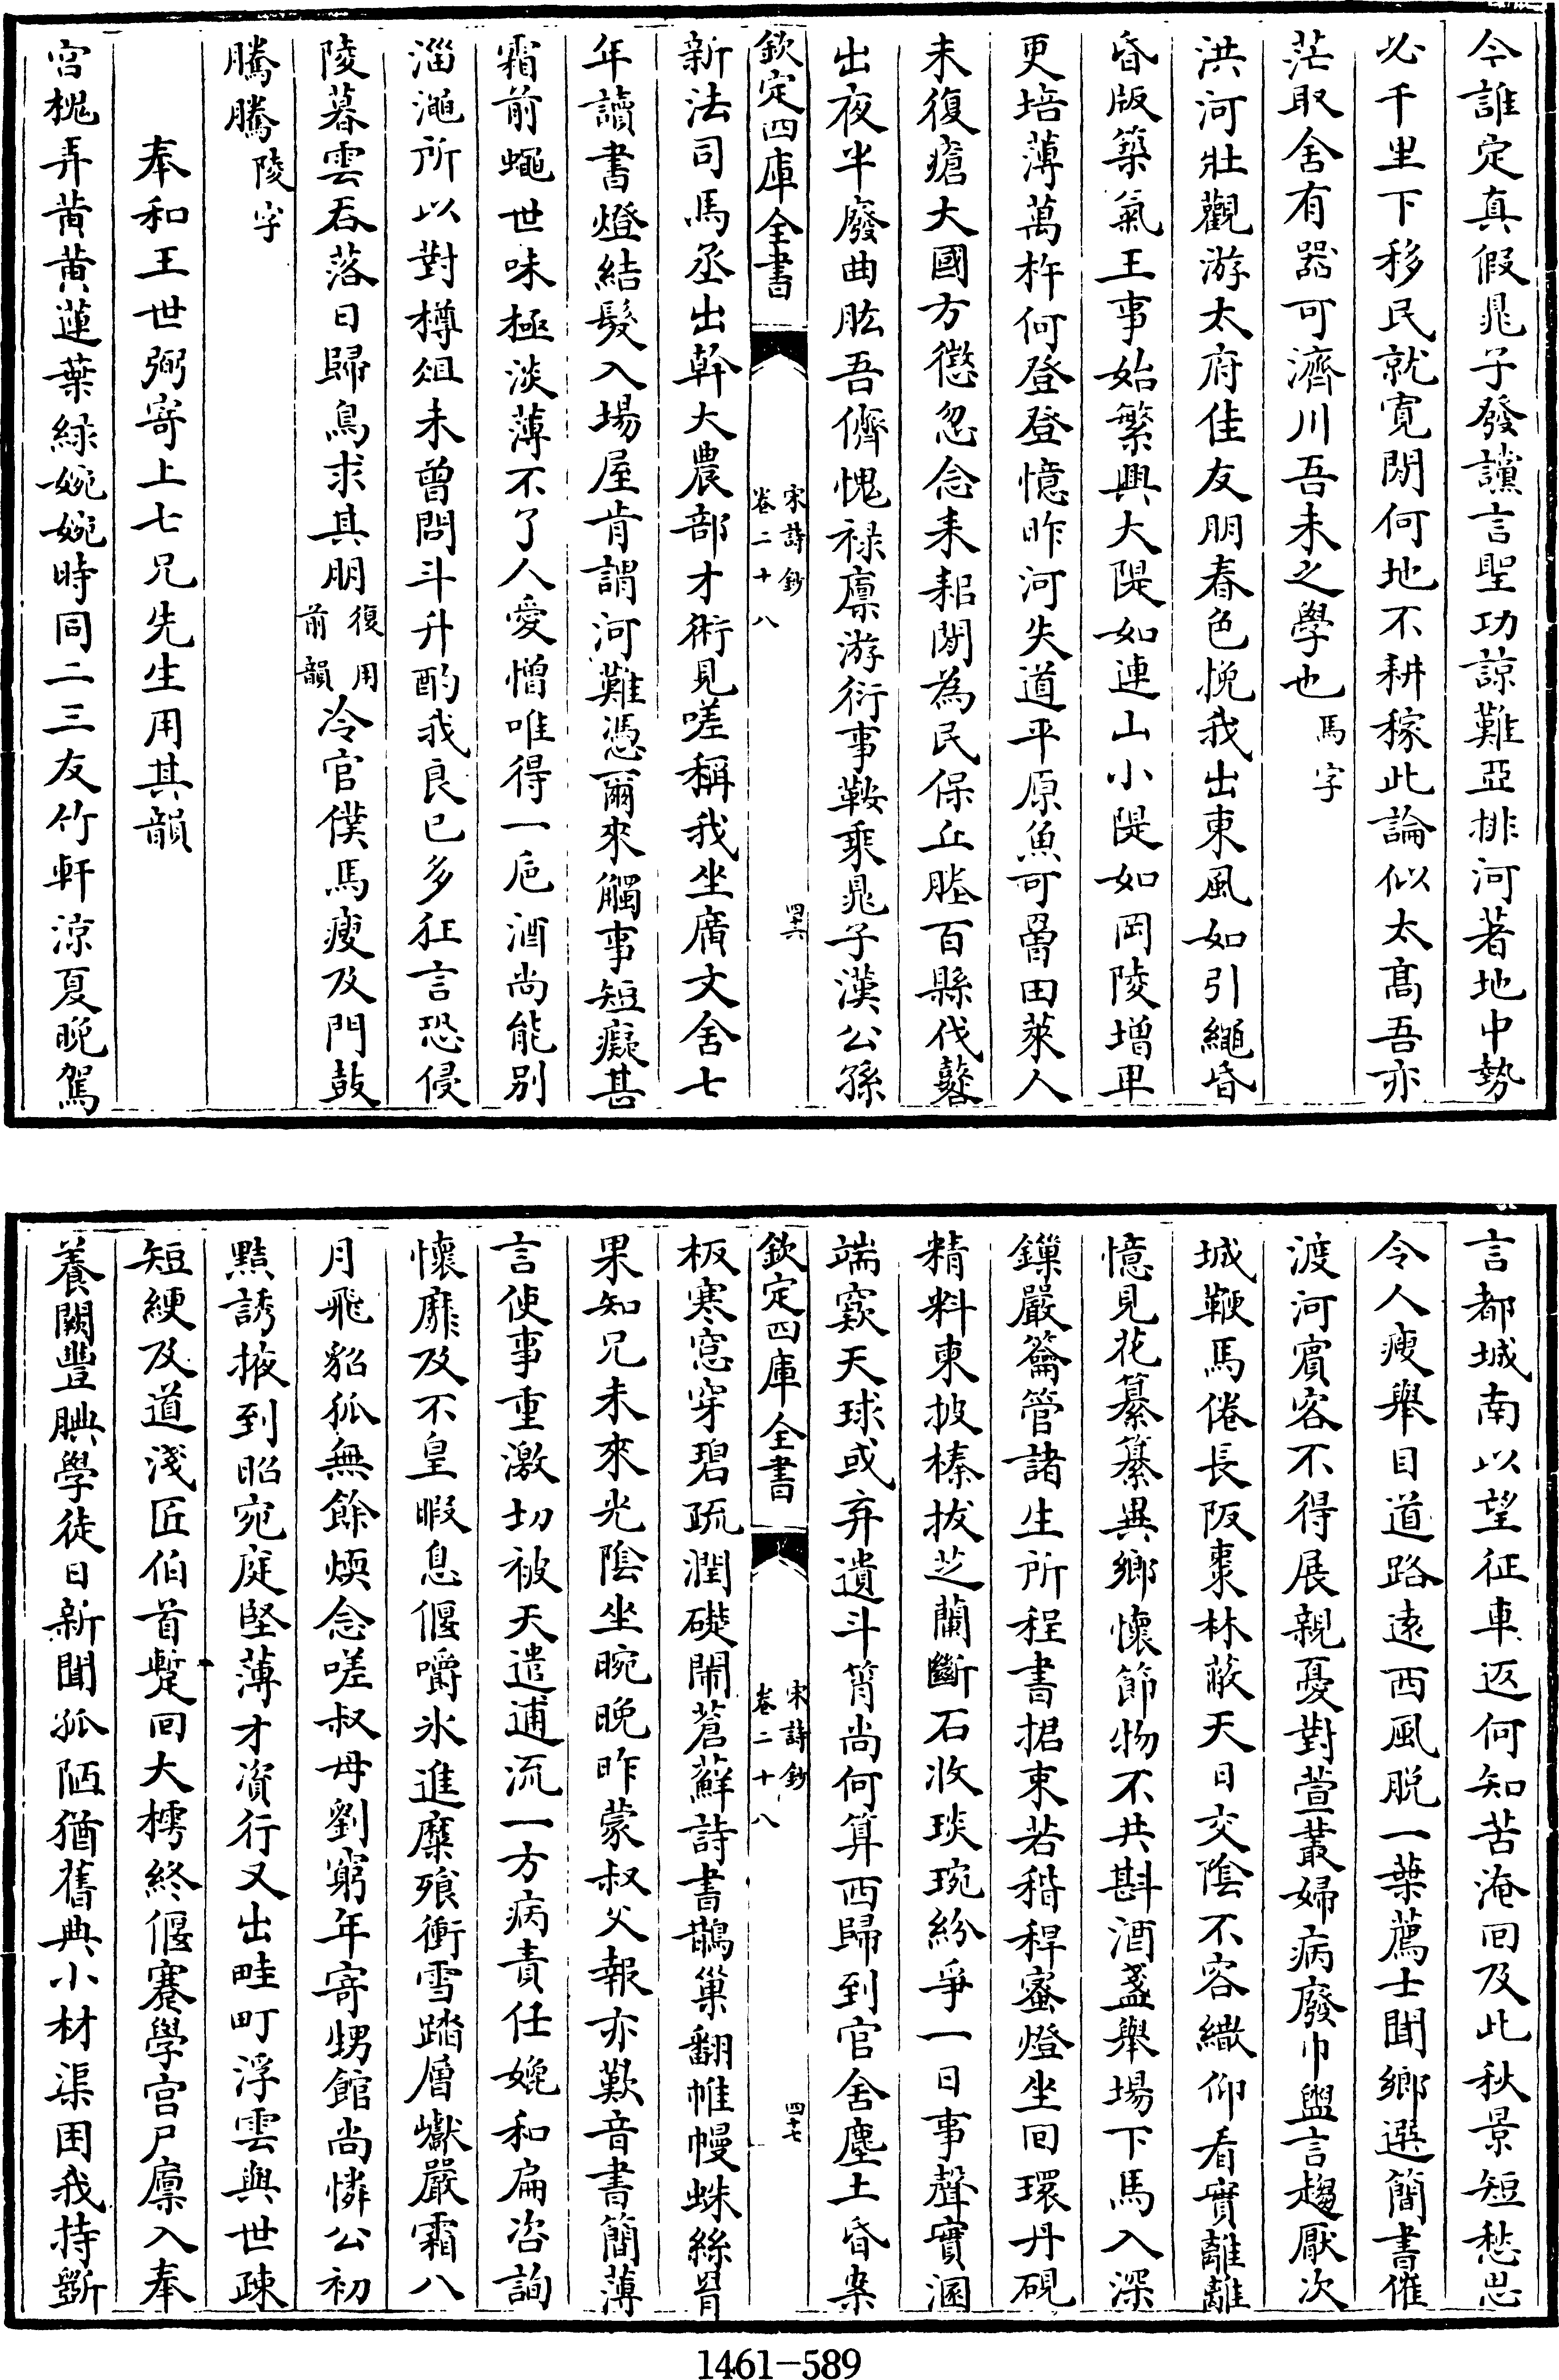 今誰定真假鼂子發讜言聖功諒難亞排河著地中勢
必千里下移民就寛閒何地不耕稼此論似太髙吾亦
茫取舍有器可濟川吾未之學也馬字
洪河壯觀游太府佳友朋春色悅我出東風如引繩昏
昏版築氣王事始繁興大隄如連山小隄如岡陵增卑
更培薄萬杵何登登憶昨河失道平原魚可罾田萊人
未復瘡大國方懲忽念耒耜閒為民保丘塍百縣伐鼛
出夜半廢曲肱吾儕愧祿廪游衍事鞍乘鼂子漢公孫
欽定四庫全書
宋詩鈔
卷二十八
四十六
新法司馬丞出幹大農部才術見嗟稱我坐廣文舍七
年讀書燈結髮入場屋肯謂河難憑爾來觸事短癡甚
霜前蠅世味極淡薄不了人愛憎唯得一巵酒尚能别
淄澠所以對樽俎未曾問斗升酌我良已多狂言恐侵
陵暮雲吞落日歸鳥求其朋復用前韻冷官僕馬瘦及門鼓
騰騰陵字
奉和王世弼寄上七兄先生用其韻
宫槐弄黄黄蓮葉緑婉婉時同二三友竹軒涼夏晚駕
言都城南以望征車返何知苦淹回及此秋景短愁思
令人瘦舉目道路逺西風脱一葉薦士聞鄉選簡書催
渡河賓客不得展親憂對萱叢婦病廢巾盥言趨厭次
城鞭馬倦長阪棗林蔽天日交隂不容繖仰看實離離
憶見花纂纂異鄉懷節物不共斟酒盞舉場下馬入深
鏁嚴籥管諸生所程書捃束若稭稈蜜燈坐回環丹硯
精料柬披榛拔芝蘭斷石收琰琬紛爭一日事聲實溷
端窾天球或弃遺斗筲尚何算西歸到官舍塵土昏案
欽定四庫全書
宋詩鈔
卷二十八
四十七
板寒窓穿碧疏潤礎閙蒼蘚詩書鵲巢翻帷幔蛛絲罥
果知兄未來光隂坐晼晚昨蒙叔父報亦歎音書簡薄
言使事重激切被天遣逋流一方病責任媲和扁咨詢
懷靡及不皇暇息偃嚼氷進糜飱衝雪踏層巘嚴霜八
月飛貂狐無餘煗念嗟叔母劉窮年寄甥館尚憐公初
㸃誘掖到昭宛庭堅薄才資行又出畦町浮雲與世疎
短綆及道淺匠伯首蹔回大樗終偃蹇學宫尸廪入奉
養闕豐腆學徒日新聞孤陋猶舊典小材渠困我持斲
1461-589